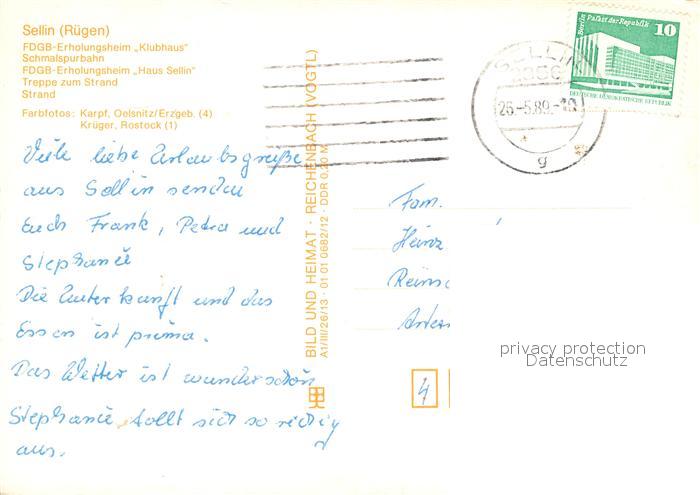 Sellin (Rügen)
FDGB-Erholungsheim „Klubhaus"
Schmalspurbahn
FDGB-Erholungsheim „Haus Sellin"
Treppe zum Strand
Strand
Farbfotos: Karpf, Oelsnitz/Erzgeb. (4)
Krüger, Rostock (1)
Viele liebe Urlaubsgrüße
aus Sellin senden
Euch Frank, Petra und
Stephanie
Die Unterkunft und das
Essen ist prima.
Das Wetter ist wunderschön
Stephanie tollt sich so richtig
aus.
BILD UND HEIMAT · REICHENBACH (VOGTL)
A1/III/26/13 · 01 01 0682/12 · DDR 0,20 M
Berlin Palast der Republik
10
DEUTSCHE DEMOKRATISCHE REPUBLIK
SELLIN
26.-5.89.-10
g
Fam.
Heinz
4
privacy protection
Datenschutz